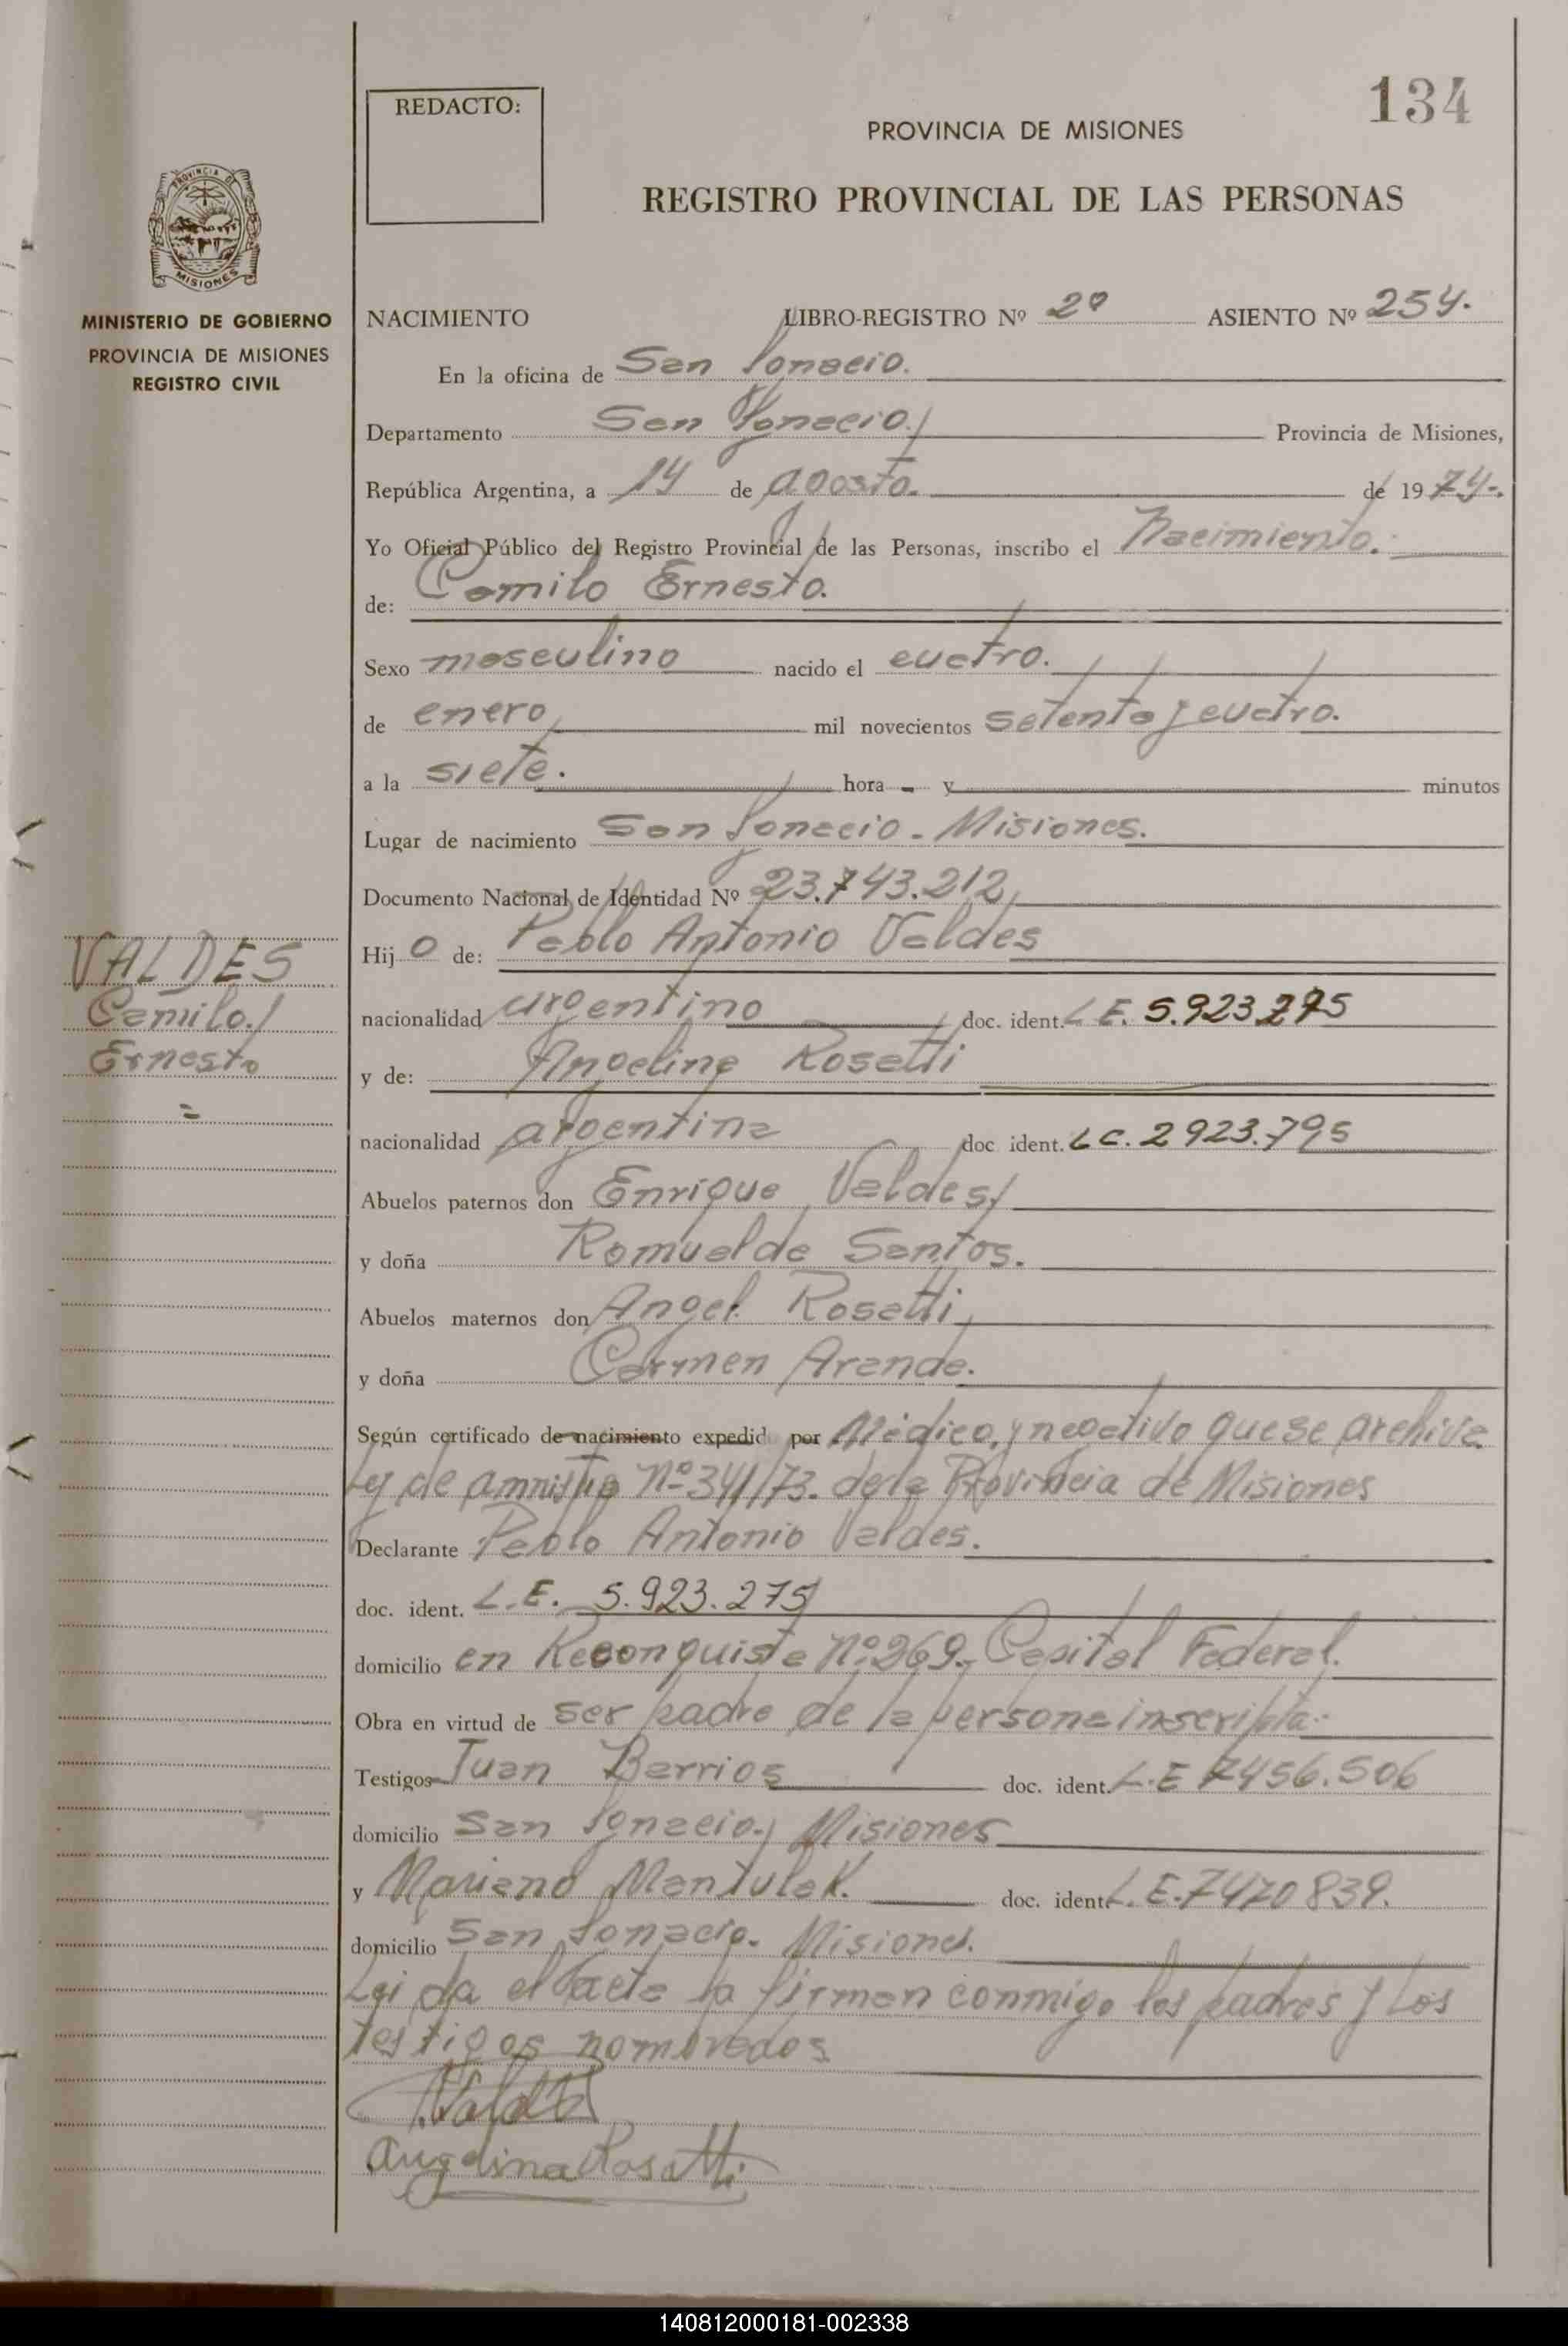 134
REDACTO:
PROVINCIA DE MISIONES
REGISTRO PROVINCIAL DE LAS PERSONAS
PROVINCIA DE
MISIONES
MINISTERIO DE GOBIERNO
PROVINCIA DE MISIONES
REGISTRO CIVIL
NACIMIENTO LIBRO-REGISTRO Nº 2º ASIENTO Nº 254.
En la oficina de San Ignacio.
Departamento San Ignacio Provincia de Misiones,
República Argentina, a 14 de agosto. de 1974.
Yo Oficial Público del Registro Provincial de las Personas, inscribo el Nacimiento.
de: Camilo Ernesto.
Sexo masculino nacido el cuatro.
de enero mil novecientos setenta y cuatro.
a la siete. hora - y minutos
Lugar de nacimiento San Ignacio - Misiones.
Documento Nacional de Identidad Nº 23.743.212
Hijo de: Pablo Antonio Valdes
VALDES
Camilo
Ernesto
=
nacionalidad argentino doc. ident. L E. 5.923.275
y de: Angelina Rosetti
nacionalidad argentina doc. ident. LC. 2923.795
Abuelos paternos don Enrique Valdes
y doña Romualda Santos.
Abuelos maternos don Angel Rosetti
y doña Carmen Aranda.
Según certificado de nacimiento expedid por Médico, y negativo que se archiva
Ley de amnistia Nº 341/73. de la Provincia de Misiones
Declarante Pablo Antonio Valdes.
doc. ident. L.E. 5.923.275
domicilio en Reconquista Nº 269. Capital Federal.
Obra en virtud de ser padre de la persona inscripta.
Testigos Juan Barrios doc. ident. L.E 7456.506
domicilio San Ignacio Misiones
y Mariano Mantulak. doc. ident. L.E. 7470839.
domicilio San Ignacio. Misiones.
Leida el acta la firman conmigo los padres y los
testigos nombrados
Angelina Rosetti
140812000181-002338